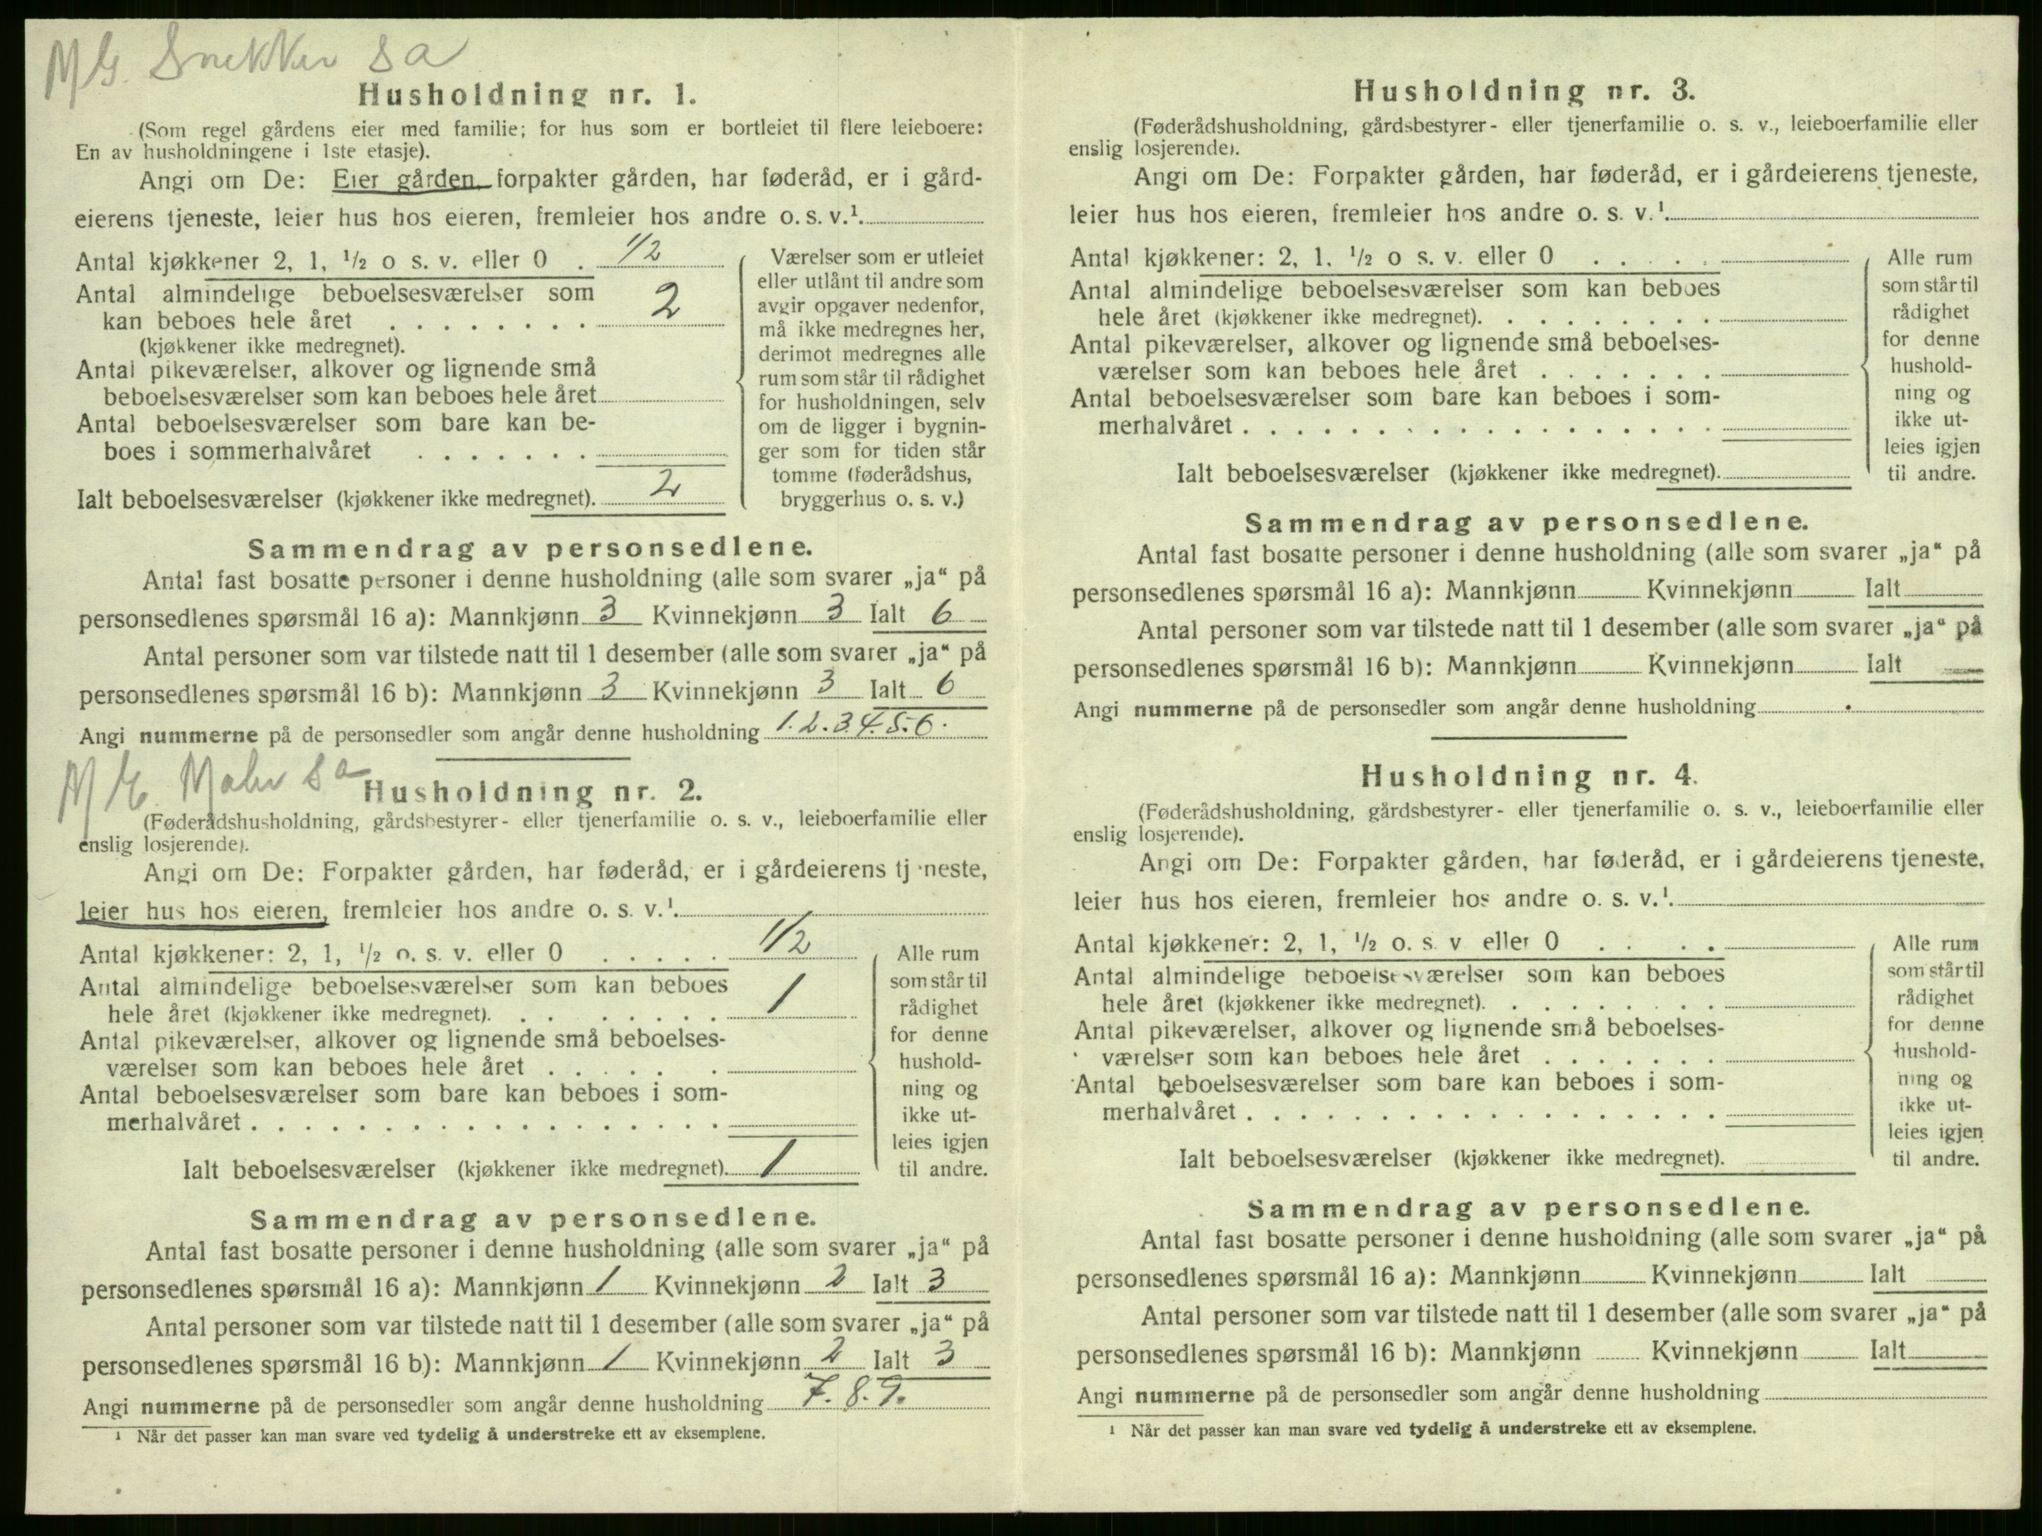 Snekker sa
Husholdning nr. 1.
(Som regel gårdens eier med familie; for hus som er bortleiet til flere leieboere:
En av husholdningene i 1ste etasje).
Angi om De: Eier gården, forpakter gården, har føderåd, er i gård-
eierens tjeneste, leier hus hos eieren, fremleier hos andre o. s. v.¹.
Antal kjøkkener 2, 1, ½ o s. v. eller 0 . 1/2
Antal almindelige beboelsesværelser som
kan beboes hele året . . . . . . . . 2
(kjøkkener ikke medregnet).
Antal pikeværelser, alkover og lignende små
beboelsesværelser som kan beboes hele året
Antal beboelsesværelser som bare kan be-
boes i sommerhalvåret . . . . . . .
Ialt beboelsesværelser (kjøkkener ikke medregnet). 2
Værelser som er utleiet
eller utlånt til andre som
avgir opgaver nedenfor,
må ikke medregnes her,
derimot medregnes alle
rum som står til rådighet
for husholdningen, selv
om de ligger i bygnin-
ger som for tiden står
tomme (føderådshus,
bryggerhus o. s. v.)
Sammendrag av personsedlene.
Antal fast bosatte personer i denne husholdning (alle som svarer „ja“ på
personsedlenes spørsmål 16 a): Mannkjønn 3 Kvinnekjønn 3 Ialt 6
Antal personer som var tilstede natt til 1 desember (alle som svarer „ja“ på
personsedlenes spørsmål 16 b): Mannkjønn 3 Kvinnekjønn 3 Ialt 6
Angi nummerne på de personsedler som angår denne husholdning 1.2.3.4.5.6.
Husholdning nr. 2.
(Føderådshusholdning, gårdsbestyrer- eller tjenerfamilie o. s. v., leieboerfamilie eller
enslig losjerende).
Angi om De: Forpakter gården, har føderåd, er i gårdeierens tj neste,
leier hus hos eieren, fremleier hos andre o. s. v.¹.
Antal kjøkkener: 2, 1, ½ o. s. v. eller 0 . . . . . 1/2
Antal almindelige beboelsesværelser som kan beboes
hele året (kjøkkener ikke medregnet). . . . . . . . 1
Antal pikeværelser, alkover og lignende små beboelses-
værelser som kan beboes hele året . . . . . .
Antal beboelsesværelser som bare kan beboes i som-
merhalvåret . . . . . . . . . . . . . . . . . .
Ialt beboelsesværelser (kjøkkener ikke medregnet). 1
Alle rum
som står til
rådighet
for denne
hushold-
ning og
ikke ut-
leies igjen
til andre.
Sammendrag av personsedlene.
Antal fast bosatte personer i denne husholdning (alle som svarer „ja“ på
personsedlenes spørsmål 16 a): Mannkjønn 1 Kvinnekjønn 2 Ialt 3
Antal personer som var tilstede natt til 1 desember (alle som svarer „ja“ på
personsedlenes spørsmål 16 b): Mannkjønn 1 Kvinnekjønn 2 Ialt 3
Angi nummerne på de personsedler som angår denne husholdning 7. 8. 9.
¹ Når det passer kan man svare ved tydelig å understreke ett av eksemplene.
Husholdning nr. 3.
(Føderådshusholdning, gårdsbestyrer- eller tjenerfamilie o. s. v., leieboerfamilie eller
enslig losjerende).
Angi om De: Forpakter gården, har føderåd, er i gårdeierens tjeneste,
leier hus hos eieren, fremleier hos andre o. s. v.¹.
Antal kjøkkener: 2, 1, ½ o s. v. eller 0 . . . . .
Antal almindelige beboelsesværelser som kan beboes
hele året (kjøkkener ikke medregnet). . . . . . . . .
Antal pikeværelser, alkover og lignende små beboelses-
værelser som kan beboes hele året . . . . . . .
Antal beboelsesværelser som bare kan beboes i som-
merhalvåret . . . . . . . . . . . . . . . . . .
Ialt beboelsesværelser (kjøkkener ikke medregnet).
Alle rum
som står til
rådighet
for denne
hushold-
ning og
ikke ut-
leies igjen
til andre.
Sammendrag av personsedlene.
Antal fast bosatte personer i denne husholdning (alle som svarer „ja“ på
personsedlenes spørsmål 16 a): Mannkjønn Kvinnekjønn Ialt
Antal personer som var tilstede natt til 1 desember (alle som svarer „ja“ på
personsedlenes spørsmål 16 b): Mannkjønn Kvinnekjønn Ialt
Angi nummerne på de personsedler som angår denne husholdning
Husholdning nr. 4.
(Føderådshusholdning, gårdsbestyrer- eller tjenerfamilie o. s. v., leieboerfamilie eller
enslig losjerende).
Angi om De: Forpakter gården, har føderåd, er i gårdeierens tjeneste,
leier hus hos eieren, fremleier hos andre o. s. v.¹.
Antal kjøkkener: 2, 1, ½ o. s. v eller 0 . . . .
Antal almindelige beboelsesværelser som kan beboes
hele året (kjøkkener ikke medregnet). . . . . . . . .
Antal pikeværelser, alkover og lignende små beboelses-
værelser som kan beboes hele året . . . . . . .
Antal beboelsesværelser som bare kan beboes i som-
merhalvåret . . . . . . . . . . . . . . . . . .
Ialt beboelsesværelser (kjøkkener ikke medregnet).
Alle rum
som står til
rådighet
for denne
hushold-
ning og
ikke ut-
leies igjen
til andre.
Sammendrag av personsedlene.
Antal fast bosatte personer i denne husholdning (alle som svarer „ja“ på
personsedlenes spørsmål 16 a): Mannkjønn Kvinnekjønn Ialt
Antal personer som var tilstede natt til 1 desember (alle som svarer „ja“ på
personsedlenes spørsmål 16 b): Mannkjønn Kvinnekjønn Ialt
Angi nummerne på de personsedler som angår denne husholdning
¹ Når det passer kan man svare ved tydelig å understreke ett av eksemplene.